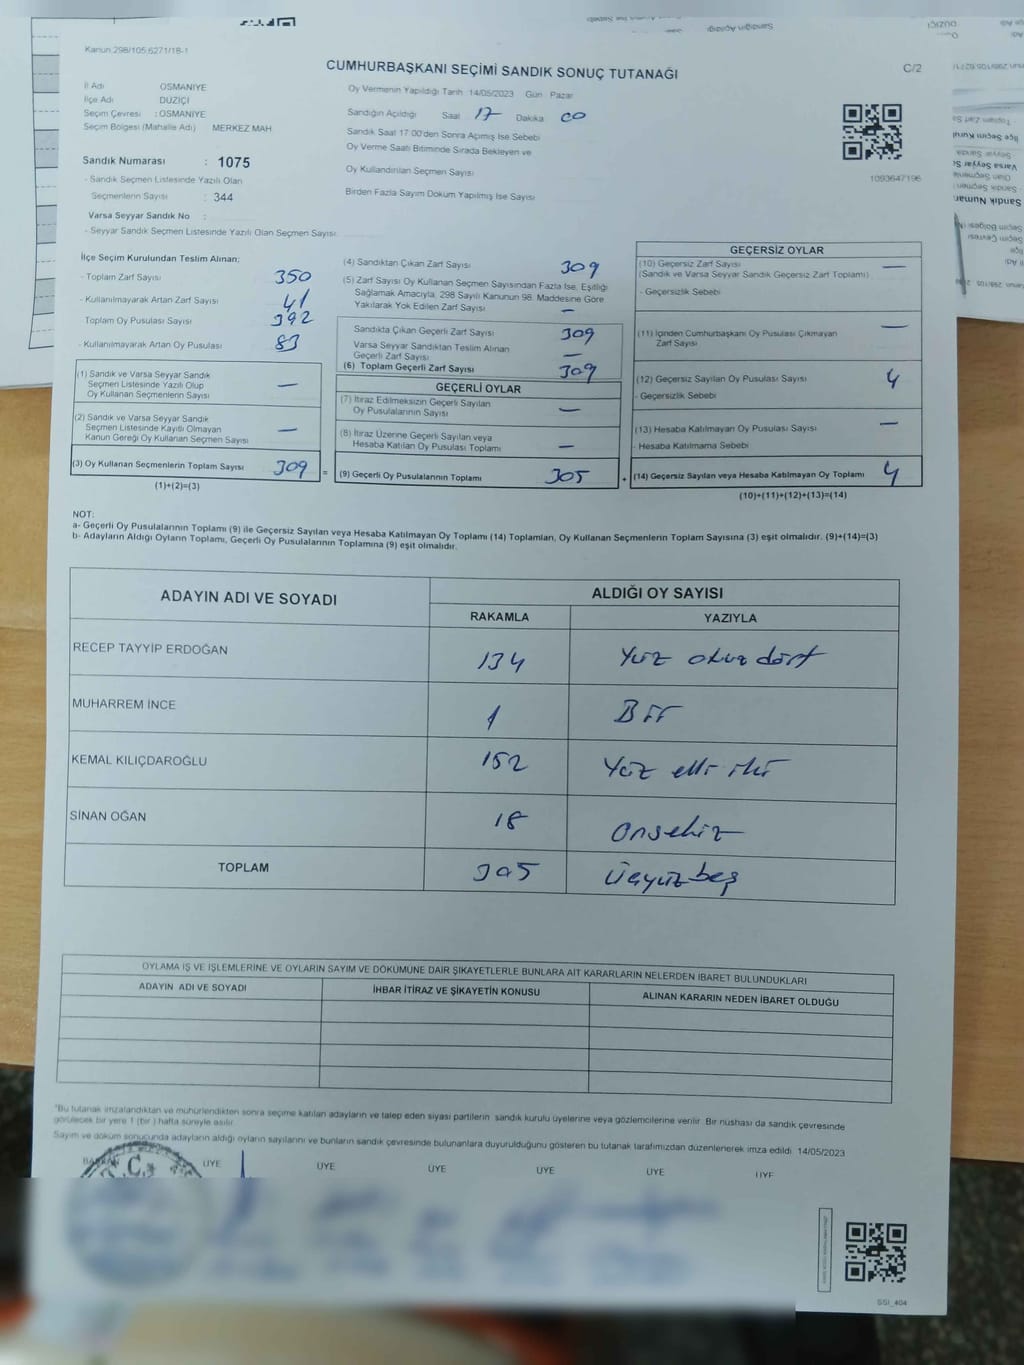 Kanun 298/105,6271/18-1
CUMHURBAŞKANI SEÇİMİ SANDIK SONUÇ TUTANAĞI
C/2
İl Adı OSMANİYE
İlçe Adı DÜZİÇİ
Seçim Çevresi : OSMANİYE
Seçim Bölgesi (Mahalle Adı) MERKEZ MAH.
Oy Vermenin Yapıldığı Tarih 14/05/2023 Gün Pazar
Sandığın Açıldığı Saat 17 Dakika 00
Sandık Saat 17 00'den Sonra Açılmış İse Sebebi
Oy Verme Saati Bitiminde Sırada Bekleyen ve
Oy Kullandırılan Seçmen Sayısı
Birden Fazla Sayım Döküm Yapılmış İse Sayısı
1093647196
Sandık Numarası : 1075
- Sandık Seçmen Listesinde Yazılı Olan
Seçmenlerin Sayısı : 344
Varsa Seyyar Sandık No :
- Seyyar Sandık Seçmen Listesinde Yazılı Olan Seçmen Sayısı
İlçe Seçim Kurulundan Teslim Alınan;
- Toplam Zarf Sayısı 350
- Kullanılmayarak Artan Zarf Sayısı 41
- Toplam Oy Pusulası Sayısı 392
- Kullanılmayarak Artan Oy Pusulası 83
(1) Sandık ve Varsa Seyyar Sandık
Seçmen Listesinde Yazılı Olup
Oy Kullanan Seçmenlerin Sayısı —
(2) Sandık ve Varsa Seyyar Sandık
Seçmen Listesinde Kayıtlı Olmayan
Kanun Gereği Oy Kullanan Seçmen Sayısı —
(3) Oy Kullanan Seçmenlerin Toplam Sayısı 309 =
(1)+(2)=(3)
(4) Sandıktan Çıkan Zarf Sayısı 309
(5) Zarf Sayısı Oy Kullanan Seçmen Sayısından Fazla İse, Eşitliği
Sağlamak Amacıyla, 298 Sayılı Kanunun 98. Maddesine Göre
Yakılarak Yok Edilen Zarf Sayısı —
Sandıkta Çıkan Geçerli Zarf Sayısı 309
Varsa Seyyar Sandıktan Teslim Alınan
Geçerli Zarf Sayısı —
(6) Toplam Geçerli Zarf Sayısı 309
GEÇERLİ OYLAR
(7) İtiraz Edilmeksizin Geçerli Sayılan
Oy Pusulalarının Sayısı —
(8) İtiraz Üzerine Geçerli Sayılan veya
Hesaba Katılan Oy Pusulası Toplamı —
(9) Geçerli Oy Pusulalarının Toplamı 305 +
GEÇERSİZ OYLAR
(10) Geçersiz Zarf Sayısı —
(Sandık ve Varsa Seyyar Sandık Geçersiz Zarf Toplamı)
- Geçersizlik Sebebi
(11) İçinden Cumhurbaşkanı Oy Pusulası Çıkmayan —
Zarf Sayısı
(12) Geçersiz Sayılan Oy Pusulası Sayısı 4
- Geçersizlik Sebebi
(13) Hesaba Katılmayan Oy Pusulası Sayısı —
- Hesaba Katılmama Sebebi
(14) Geçersiz Sayılan veya Hesaba Katılmayan Oy Toplamı 4
(10)+(11)+(12)+(13)=(14)
NOT:
a- Geçerli Oy Pusulalarının Toplamı (9) ile Geçersiz Sayılan veya Hesaba Katılmayan Oy Toplamı (14) Toplamları, Oy Kullanan Seçmenlerin Toplam Sayısına (3) eşit olmalıdır. (9)+(14)=(3)
b- Adayların Aldığı Oyların Toplamı, Geçerli Oy Pusulalarının Toplamına (9) eşit olmalıdır.
ADAYIN ADI VE SOYADI
ALDIĞI OY SAYISI
RAKAMLA YAZIYLA
RECEP TAYYİP ERDOĞAN 134 Yüz otuz dört
MUHARREM İNCE 1 Bir
KEMAL KILIÇDAROĞLU 152 Yüz elli iki
SİNAN OĞAN 18 Onsekiz
TOPLAM 305 Üçyüz beş
OYLAMA İŞ VE İŞLEMLERİNE VE OYLARIN SAYIM VE DÖKÜMÜNE DAİR ŞİKAYETLERLE BUNLARA AİT KARARLARIN NELERDEN İBARET BULUNDUKLARI
ADAYIN ADI VE SOYADI İHBAR İTİRAZ VE ŞİKAYETİN KONUSU ALINAN KARARIN NEDEN İBARET OLDUĞU
*Bu tutanak imzalandıktan ve mühürlendikten sonra seçime katılan adayların ve talep eden siyasi partilerin sandık kurulu üyelerine veya gözlemcilerine verilir. Bir nüshası da sandık çevresinde
görülecek bir yere 1 (bir ) hafta süreyle asılır.
Sayım ve döküm sonucunda adayların aldığı oyların sayılarını ve bunların sandık çevresinde bulunanlara duyurulduğunu gösteren bu tutanak tarafımızdan düzenlenerek imza edildi. 14/05/2023
BAŞKAN ÜYE ÜYE ÜYE ÜYE ÜYE ÜYE
T.C.
SSI_404